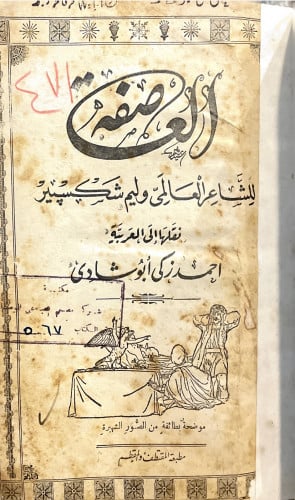 ٤٧١
العاصفة
للشاعر العالمى وليم شكسبير
نقلها إلى العربية
احمد زكى أبو شادى
مكتبة
الكتاب
٥٠٦٧
موضحة بطائفة من الصور الشهيرة
مطبعة المقتطف والمقطم